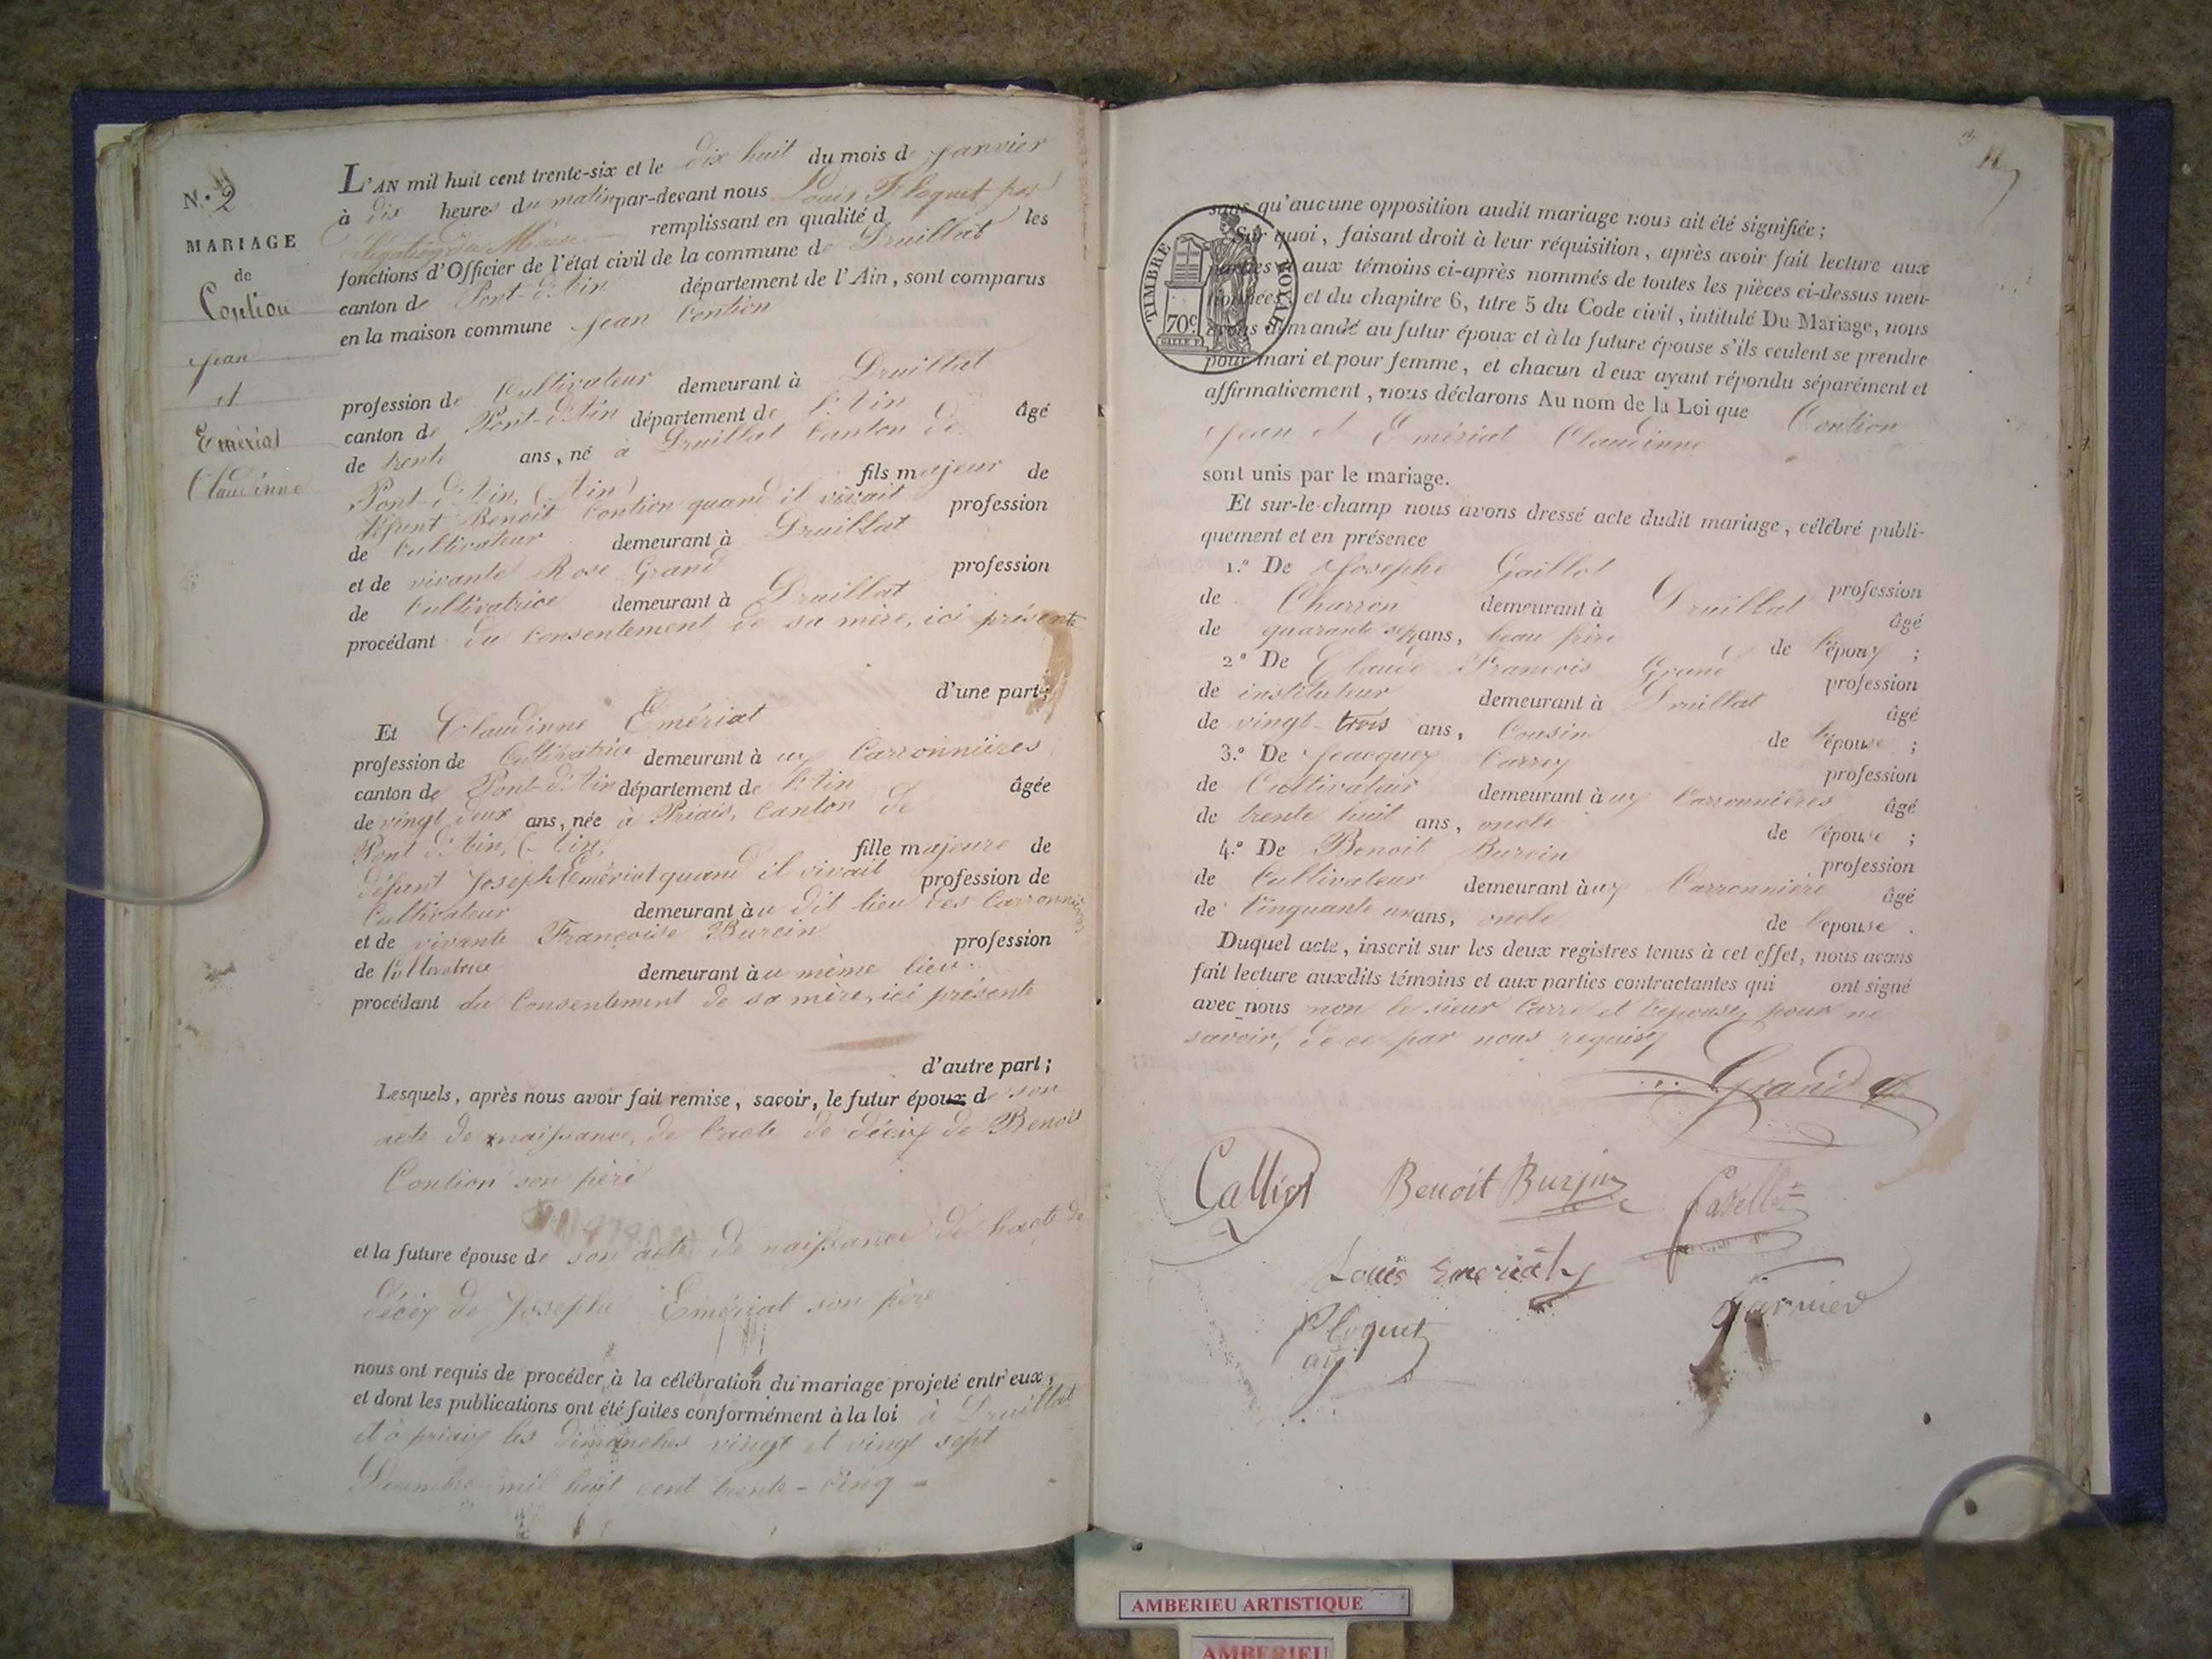 N.º 2
MARIAGE
de
Contion
Jean
et
Emériat
Claudinne
L'AN mil huit cent trente-six et le dix huit du mois de janvier
à dix heures du matin par-devant nous Louis Floquet par
délégation du Maire remplissant en qualité d les
fonctions d'Officier de l'état civil de la commune de Druillat
canton de Pont-d'Ain département de l'Ain, sont comparus
en la maison commune Jean Contion
profession de Cultivateur demeurant à Druillat
canton de Pont-d'Ain département de l'Ain âgé
de trente ans, né à Druillat Canton de
Pont-d'Ain, (Ain) fils majeur de
défunt Benoit Contion quand il vivait profession
de Cultivateur demeurant à Druillat
et de vivante Rose Grand profession
de Cultivatrice demeurant à Druillat
procédant du Consentement de sa mère, ici présente
d'une part;
Et Claudinne Emériat
profession de Cultivatrice demeurant à ux Carronnières
canton de Pont-d'Ain département de l'Ain âgée
de vingt deux ans, née à Priais, Canton de
Pont d'Ain, (Ain) fille majeure de
défunt Joseph Emériat quand il vivait profession de
Cultivateur demeurant à u dit lieu des Carronnières
et de vivante Françoise Burcin profession
de Cultivatrice demeurant à u même lieu.
procédant du Consentement de sa mère, ici présente
d'autre part;
Lesquels, après nous avoir fait remise, savoir, le futur époux de son
acte de naissance, de l'acte de décès de Benoit
Contion son père
et la future épouse de son acte de naissance de l'acte de
décès de Josephe Emériat son père
nous ont requis de procéder à la célébration du mariage projeté entr'eux,
et dont les publications ont été faites conformément à la loi à Druillat
et à priay les dimanches vingt et vingt sept
Décembre mil huit cent trente-cinq
TIMBRE ROYAL
70c
sans qu'aucune opposition audit mariage nous ait été signifiée;
Sur quoi, faisant droit à leur réquisition, après avoir fait lecture aux
parties et aux témoins ci-après nommés de toutes les pièces ci-dessus men-
tionnées, et du chapitre 6, titre 5 du Code civil, intitulé Du Mariage, nous
avons demandé au futur époux et à la future épouse s'ils veulent se prendre
pour mari et pour femme, et chacun d'eux ayant répondu séparément et
affirmativement, nous déclarons Au nom de la Loi que Contion
Jean et Emériat Claudinne
sont unis par le mariage.
Et sur-le-champ nous avons dressé acte dudit mariage, célébré publi-
quement et en présence
1.º De Josephe Gaillot profession
de Charron demeurant à Druillat âgé
de quarante sept ans, beau frère de l'époux;
2.º De Claude François Grand profession
de instituteur demeurant à Druillat âgé
de vingt-trois ans, Cousin de l'épouse;
3.º De Jeacques Carrey profession
de Cultivateur demeurant à ux Carronnières âgé
de trente huit ans, oncle de l'épouse;
4.º De Benoit Burcin profession
de Cultivateur demeurant à ux Carronnière âgé
de Cinquante un ans, oncle de l'epouse.
Duquel acte, inscrit sur les deux registres tenus à cet effet, nous avons
fait lecture auxdits témoins et aux parties contractantes qui ont signé
avec nous non le sieur Carré et l'epouse, pour ne
savoir, de ce par nous requis
Grand
Calliot Benoit Burjin
Louis Emeriat
Floquet Garnier
adj
AMBERIEU ARTISTIQUE
AMBERIEU